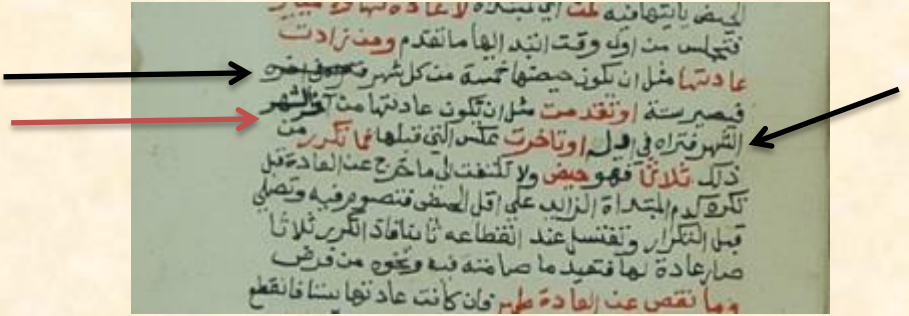 لا عادة لها
فتجلس من اول وقت ابتدائها ما تقدم ومن زادت
عادتها مثل ان تكون حيضها خمسة من كل شهر
فيصير ستة او تقدمت مثل ان تكون عادتها من آخر الشهر
الشهر فتراه في اوله او تاخرت عكس التي قبلها فما تكرر من
ذلك ثلاثا فهو حيض ولا تلتفت الى ما خرج عن العادة قبل
تكرره كدم المبتداة الزايد على اقل الحيض فتصوم فيه وتصلي
قبل التكرار وتغتسل عند انقطاعه ثانيا فاذا تكرر ثلاثا
صار عادة لها فتعيد ما صامته فيه ونحوه من فرض
وما نقص عن العادة طهر فان كانت عادتها ستا فانقطع